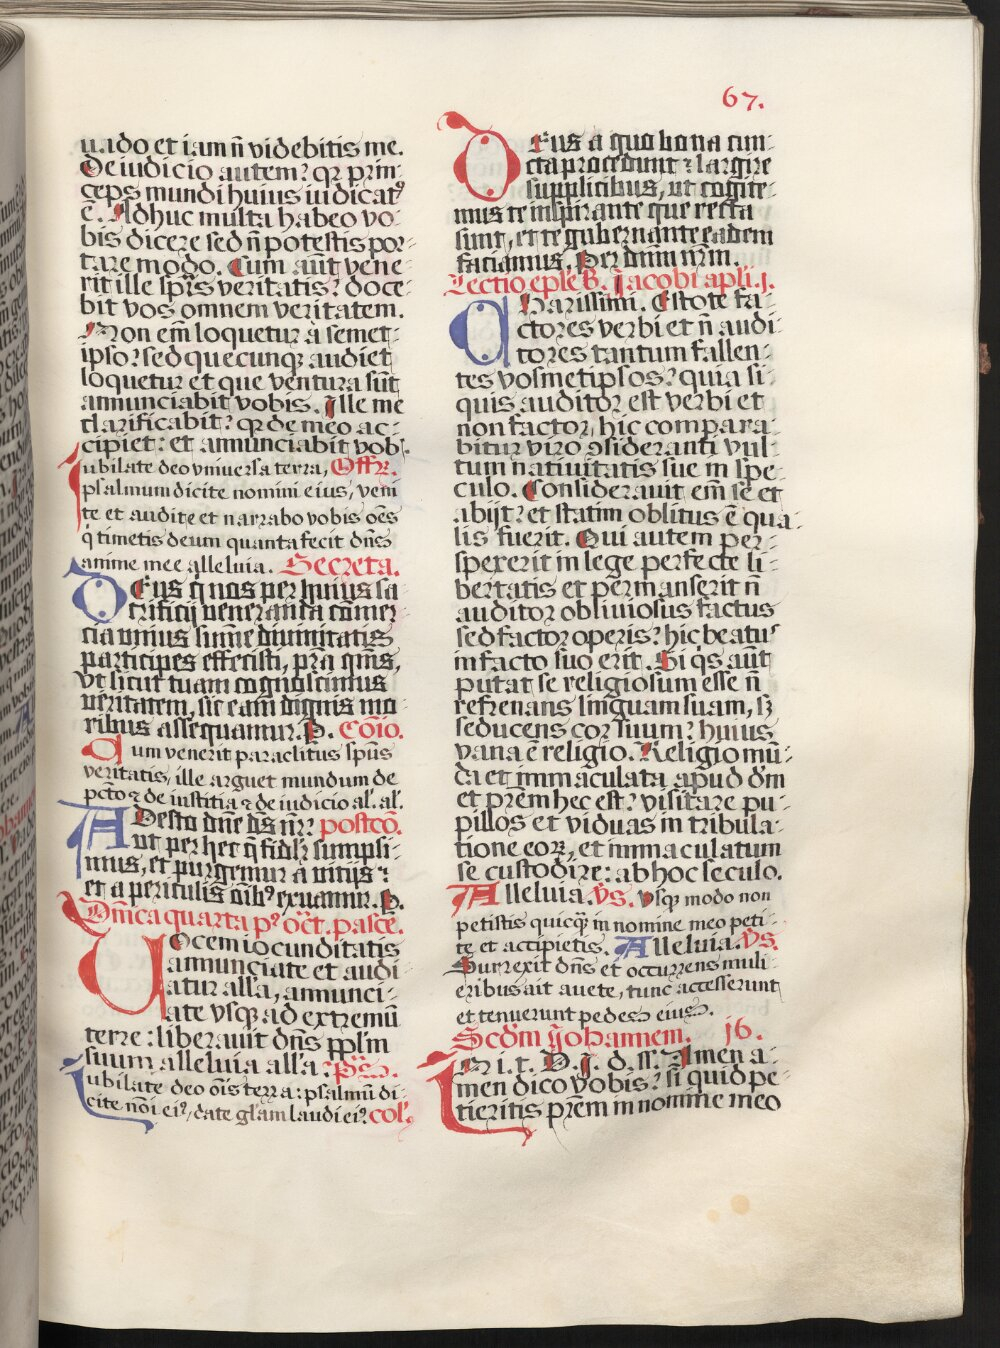 67.
uado et iam n̄ videbitis me.
De iudicio autem? qꝛ prin-
ceps mundi huius iudicatꝰ
ē. Adhuc multa habeo vo-
bis dicere sed n̄ potestis por-
tare modo. Cum aūt vene-
rit ille sp̄s veritatis? doce-
bit vos omnem veritatem.
Non em̄ loquetur a semet-
ipso? sed quecunqꝫ audiet
loquetur et que ventura sūt
annunciabit vobis. Ille me
clarificabit? qꝛ de meo ac-
cipiet: et annunciabit vob̓.
Iubilate deo vniuersa terra, Offr̄.
psalmum dicite nomini eius, veni
te et audite et narrabo vobis oēs
q̇ timetis deum quanta fecit dn̄s
anime mee alleluia. Secreta.
Deus q̇ nos per huius sa
crificij veneranda cōmer
cia vnius sum̄e diuinitatis
participes effecisti, pr̄a q̄ms,
vt sicut tuam cognoscimus
veritatem, sic eam dignis mo
ribus assequamur. P. Cōio.
Cum venerit paraclitus spūs
veritatis, ille arguet mundum de
pctō ⁊ de iustitia ⁊ de iudicio al̓. al̓.
Adesto dn̄e ds̄ nr̄? postcō.
vt per hec q̄ fidel̓r sumpsi-
mus, et purgemur a vitijs?
et a periculis oīb? exuamur. P.
Dn̄ica quarta pꝰ oct̄. pasce.
Vocem iocunditatis
annunciate et audi
atur all̓a, annunci-
ate vsqꝫ ad extremū
terre: liberauit dn̄s pp̄l̓m
suum alleluia all̓a. ps̄.
Iubilate deo oīs terra: psalmū di-
cite nōi eiꝰ, date gl̄am laudi eiꝰ. col̓.
Deus a quo bona cun-
cta procedunt? largire
supplicibus, ut cogite-
mus te inspirante que recta
sunt, et te gubernante eadem
faciamus. Per dn̄m nr̄m.
Lectio ep̄le B. Jacobi apl̓i. j.
Charissimi. Estote fa-
ctores verbi et n̄ audi-
tores tantum fallen-
tes vosmetipsos? quia si-
quis auditor est verbi et
non factor, hic compara-
bitur viro ɔsideranti vul-
tum natiuitatis sue in spe-
culo. Considerauit em̄ se et
abijt? et statim oblitus ē qua-
lis fuerit. Qui autem per-
spexerit in lege perfecte li-
bertatis et permanserit n̄
auditor obliuiosus factus
sed factor operis? hic beatꝰ
in facto suo erit. Si q̇s aūt
putat se religiosum esse n̄
refrenans linguam suam, sꝫ
seducens cor suum? huius
vana ē religio. Religio mū-
da et immaculata apud dm̄
et pr̄em hec est? visitare pu-
pillos et viduas in tribula-
tione eoꝝ, et immaculatum
se custodire: ab hoc seculo.
Alleluia. v̄s. Vsqꝫ modo non
petistis quicq̄ in nomine meo peti-
te et accipietis. Alleluia. v̄s.
Surrexit dn̄s et occurrens muli-
eribus ait auete, tunc accesserunt
et tenuerunt pedes eius.
Scd̓m yohannem. j6.
In i. t. D. J. d. ss. Amen a-
men dico vobis? si quid pe-
tieritis pr̄em in nomine meo